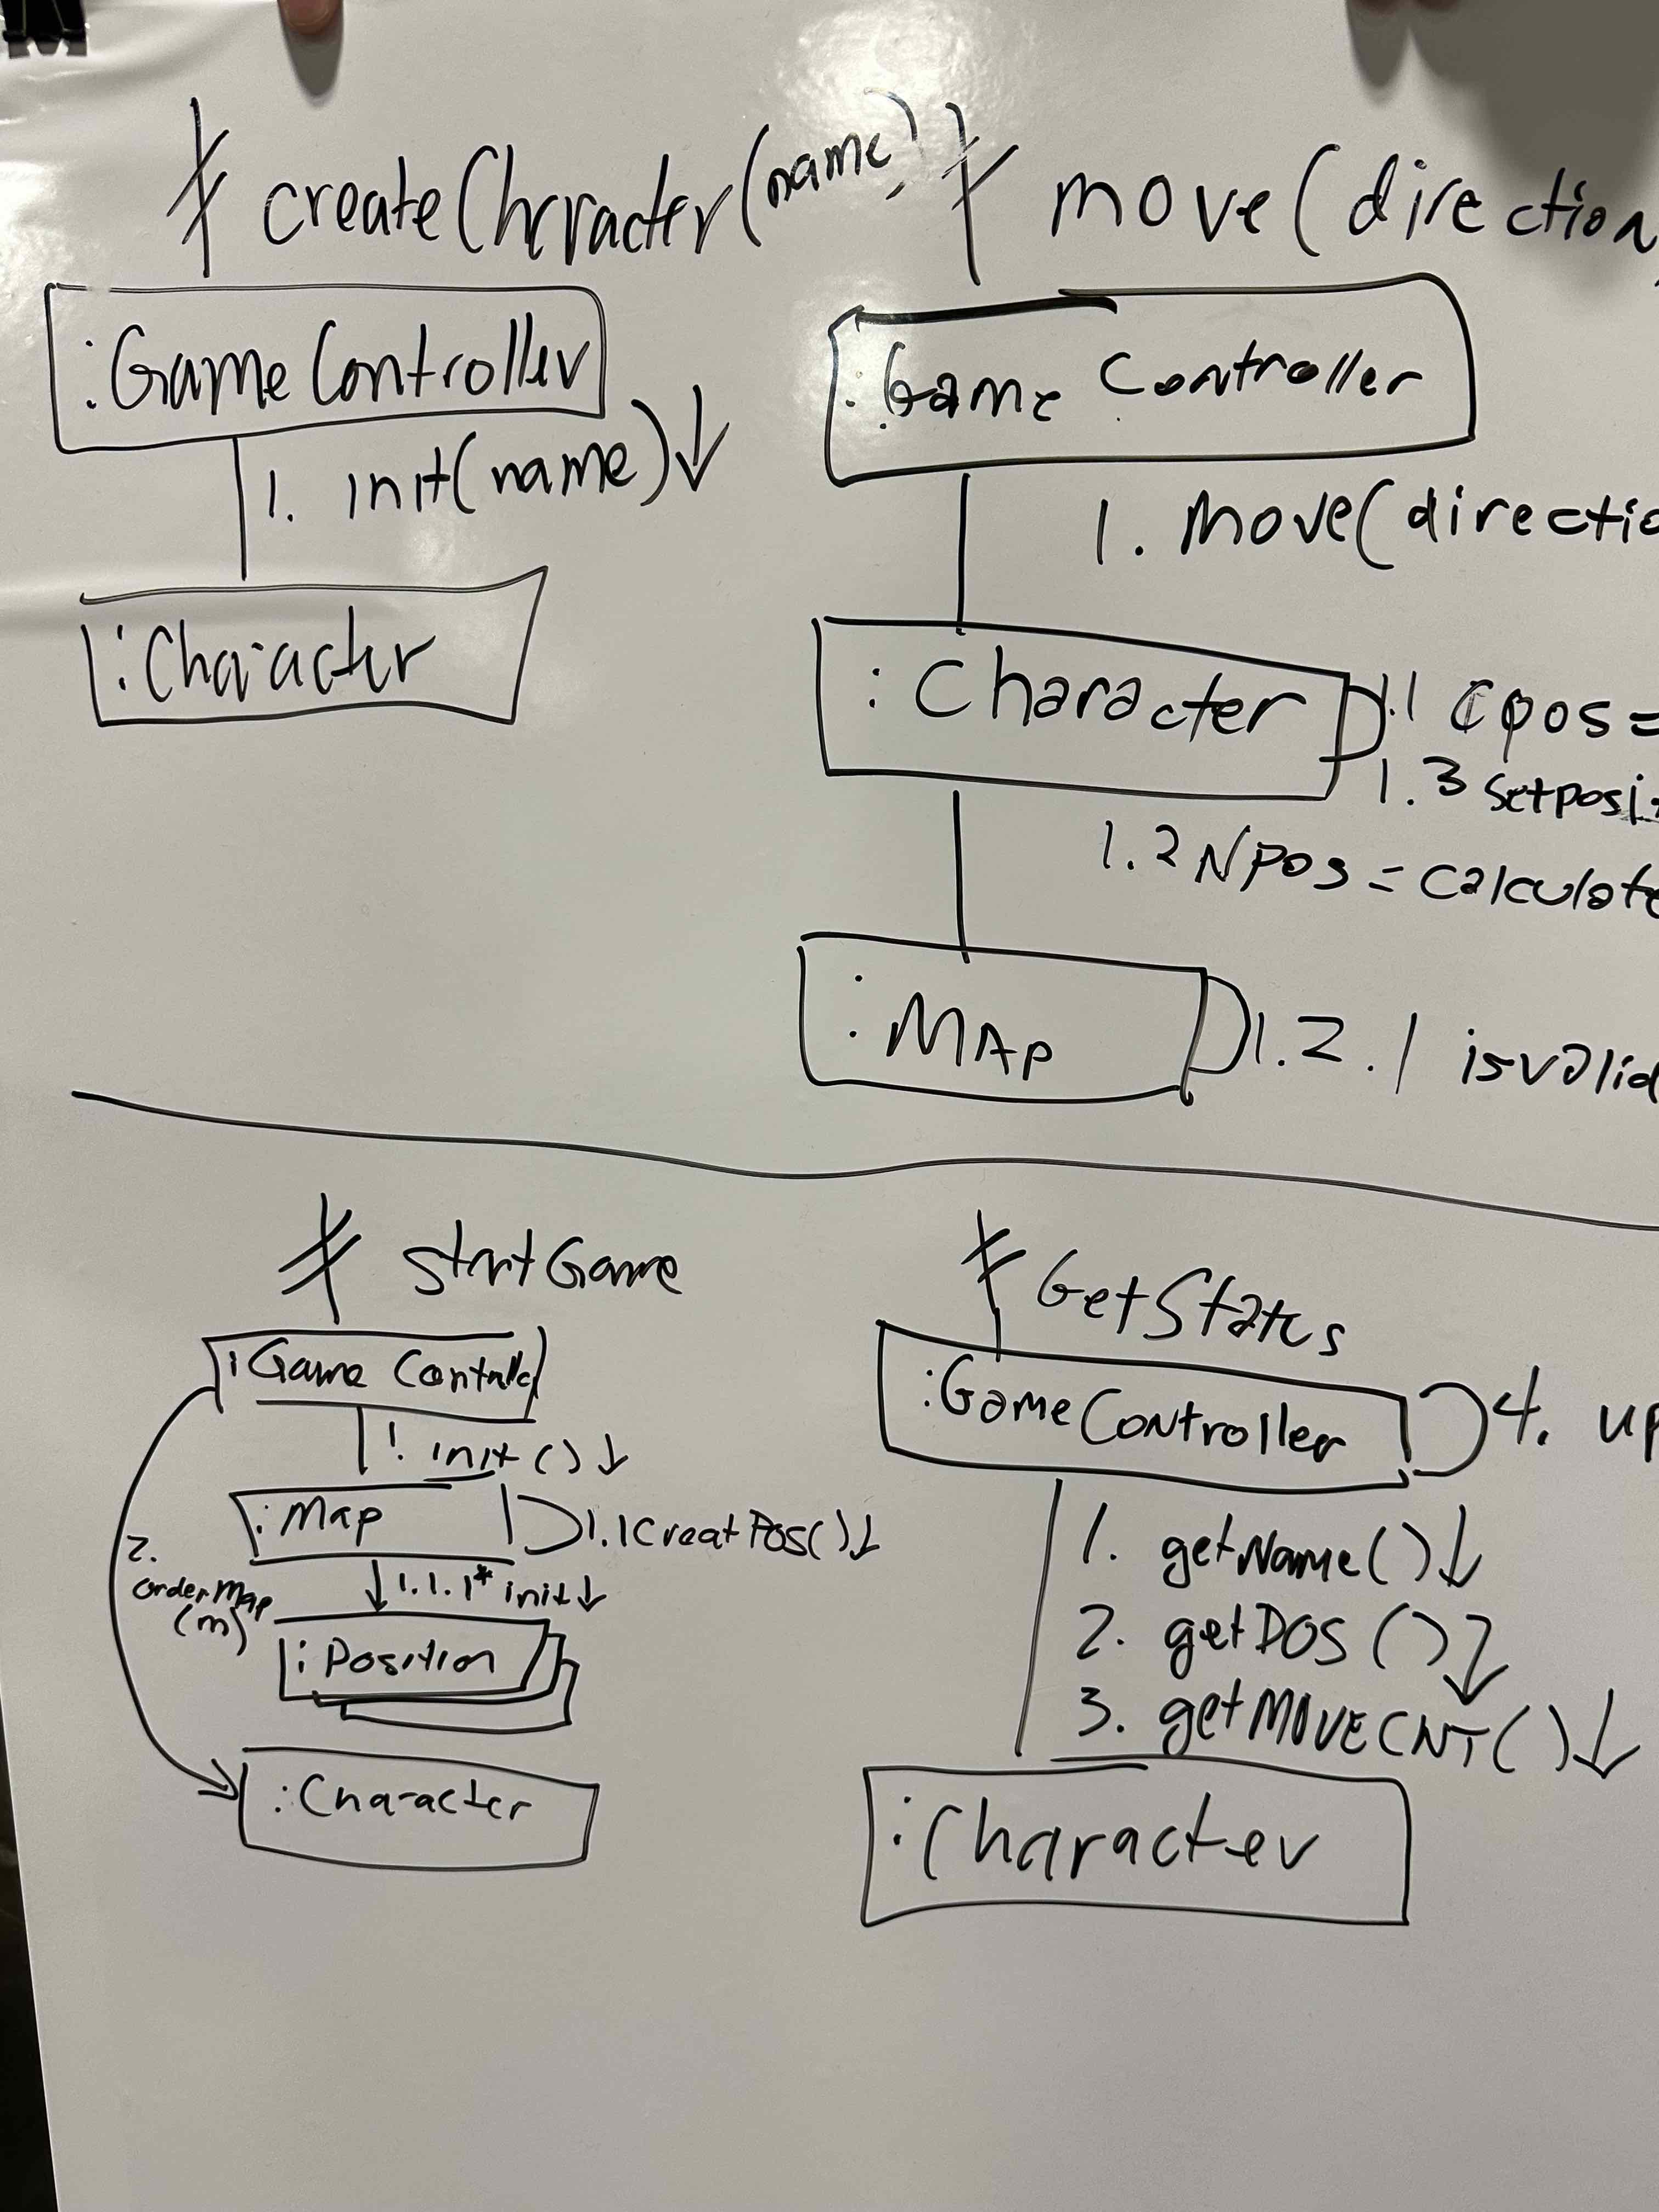 createCharacter(name)
:GameController
1. init(name)↓
:Character
move(direction
:Game Controller
1. move(directio
:Character
1.1 Cpos=
1.3 setposit
1.2 Npos=calculate
:MAP
1.2.1 isvalid
startGame
:Game Controller
1. init()↓
:Map
1.1 CreatPos()↓
2.
orderMap
(m)
↓1.1.1* init↓
:Position
:Character
GetStatus
:GameController
4. up
1. getName()↓
2. getPOS()↓
3. getMOVECNT()↓
:Character